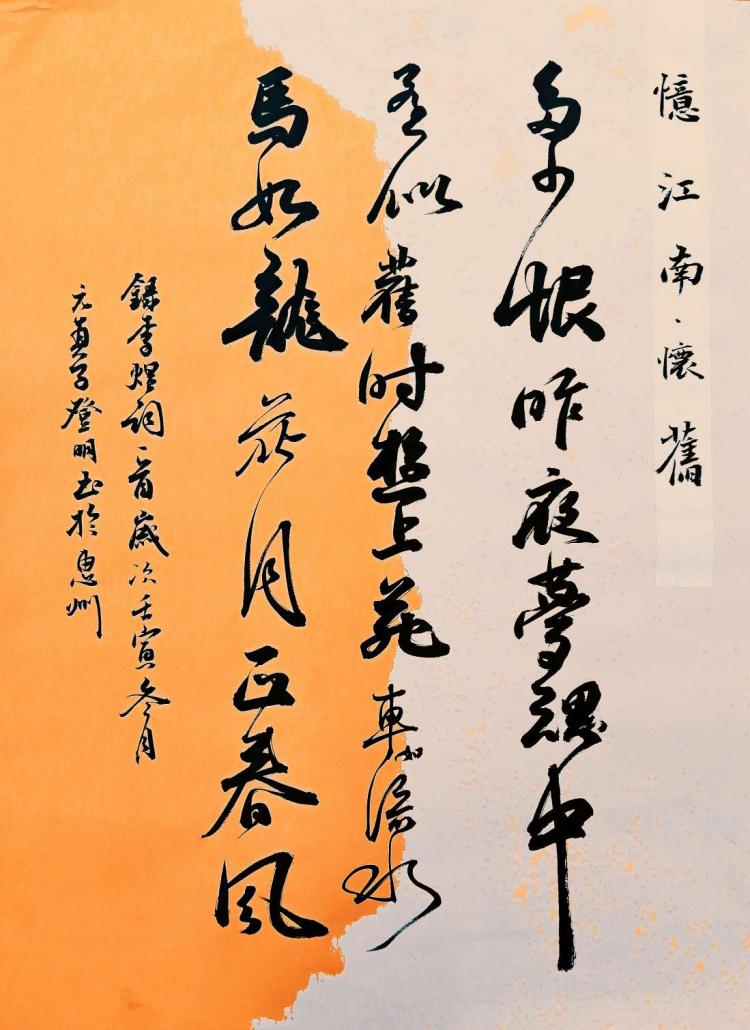 憶江南、懷舊
多少恨昨夜夢魂中
還似舊时遊上苑車如流水
馬如龍花月正春風
録李煜詞一首歲次壬寅冬月
元真子登明书於惠州